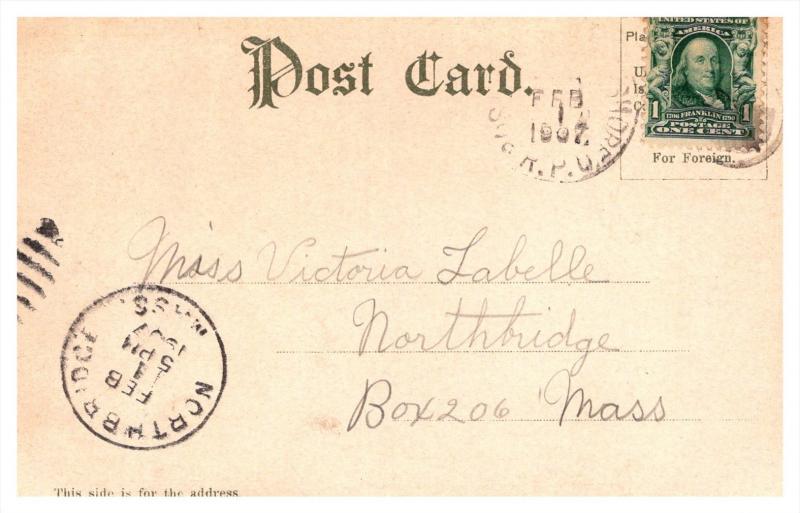 Post Card.
UNITED STATES OF
AMERICA
1706 FRANKLIN 1790
POSTAGE
1 ONE CENT 1
Pla
U.
For Foreign.
FEB
1907
SHORE
R.P.O.
Miss Victoria Labelle
Northbridge
Box 206 Mass
NORTHBRIDGE MASS.
FEB
5 PM
1907
This side is for the address.